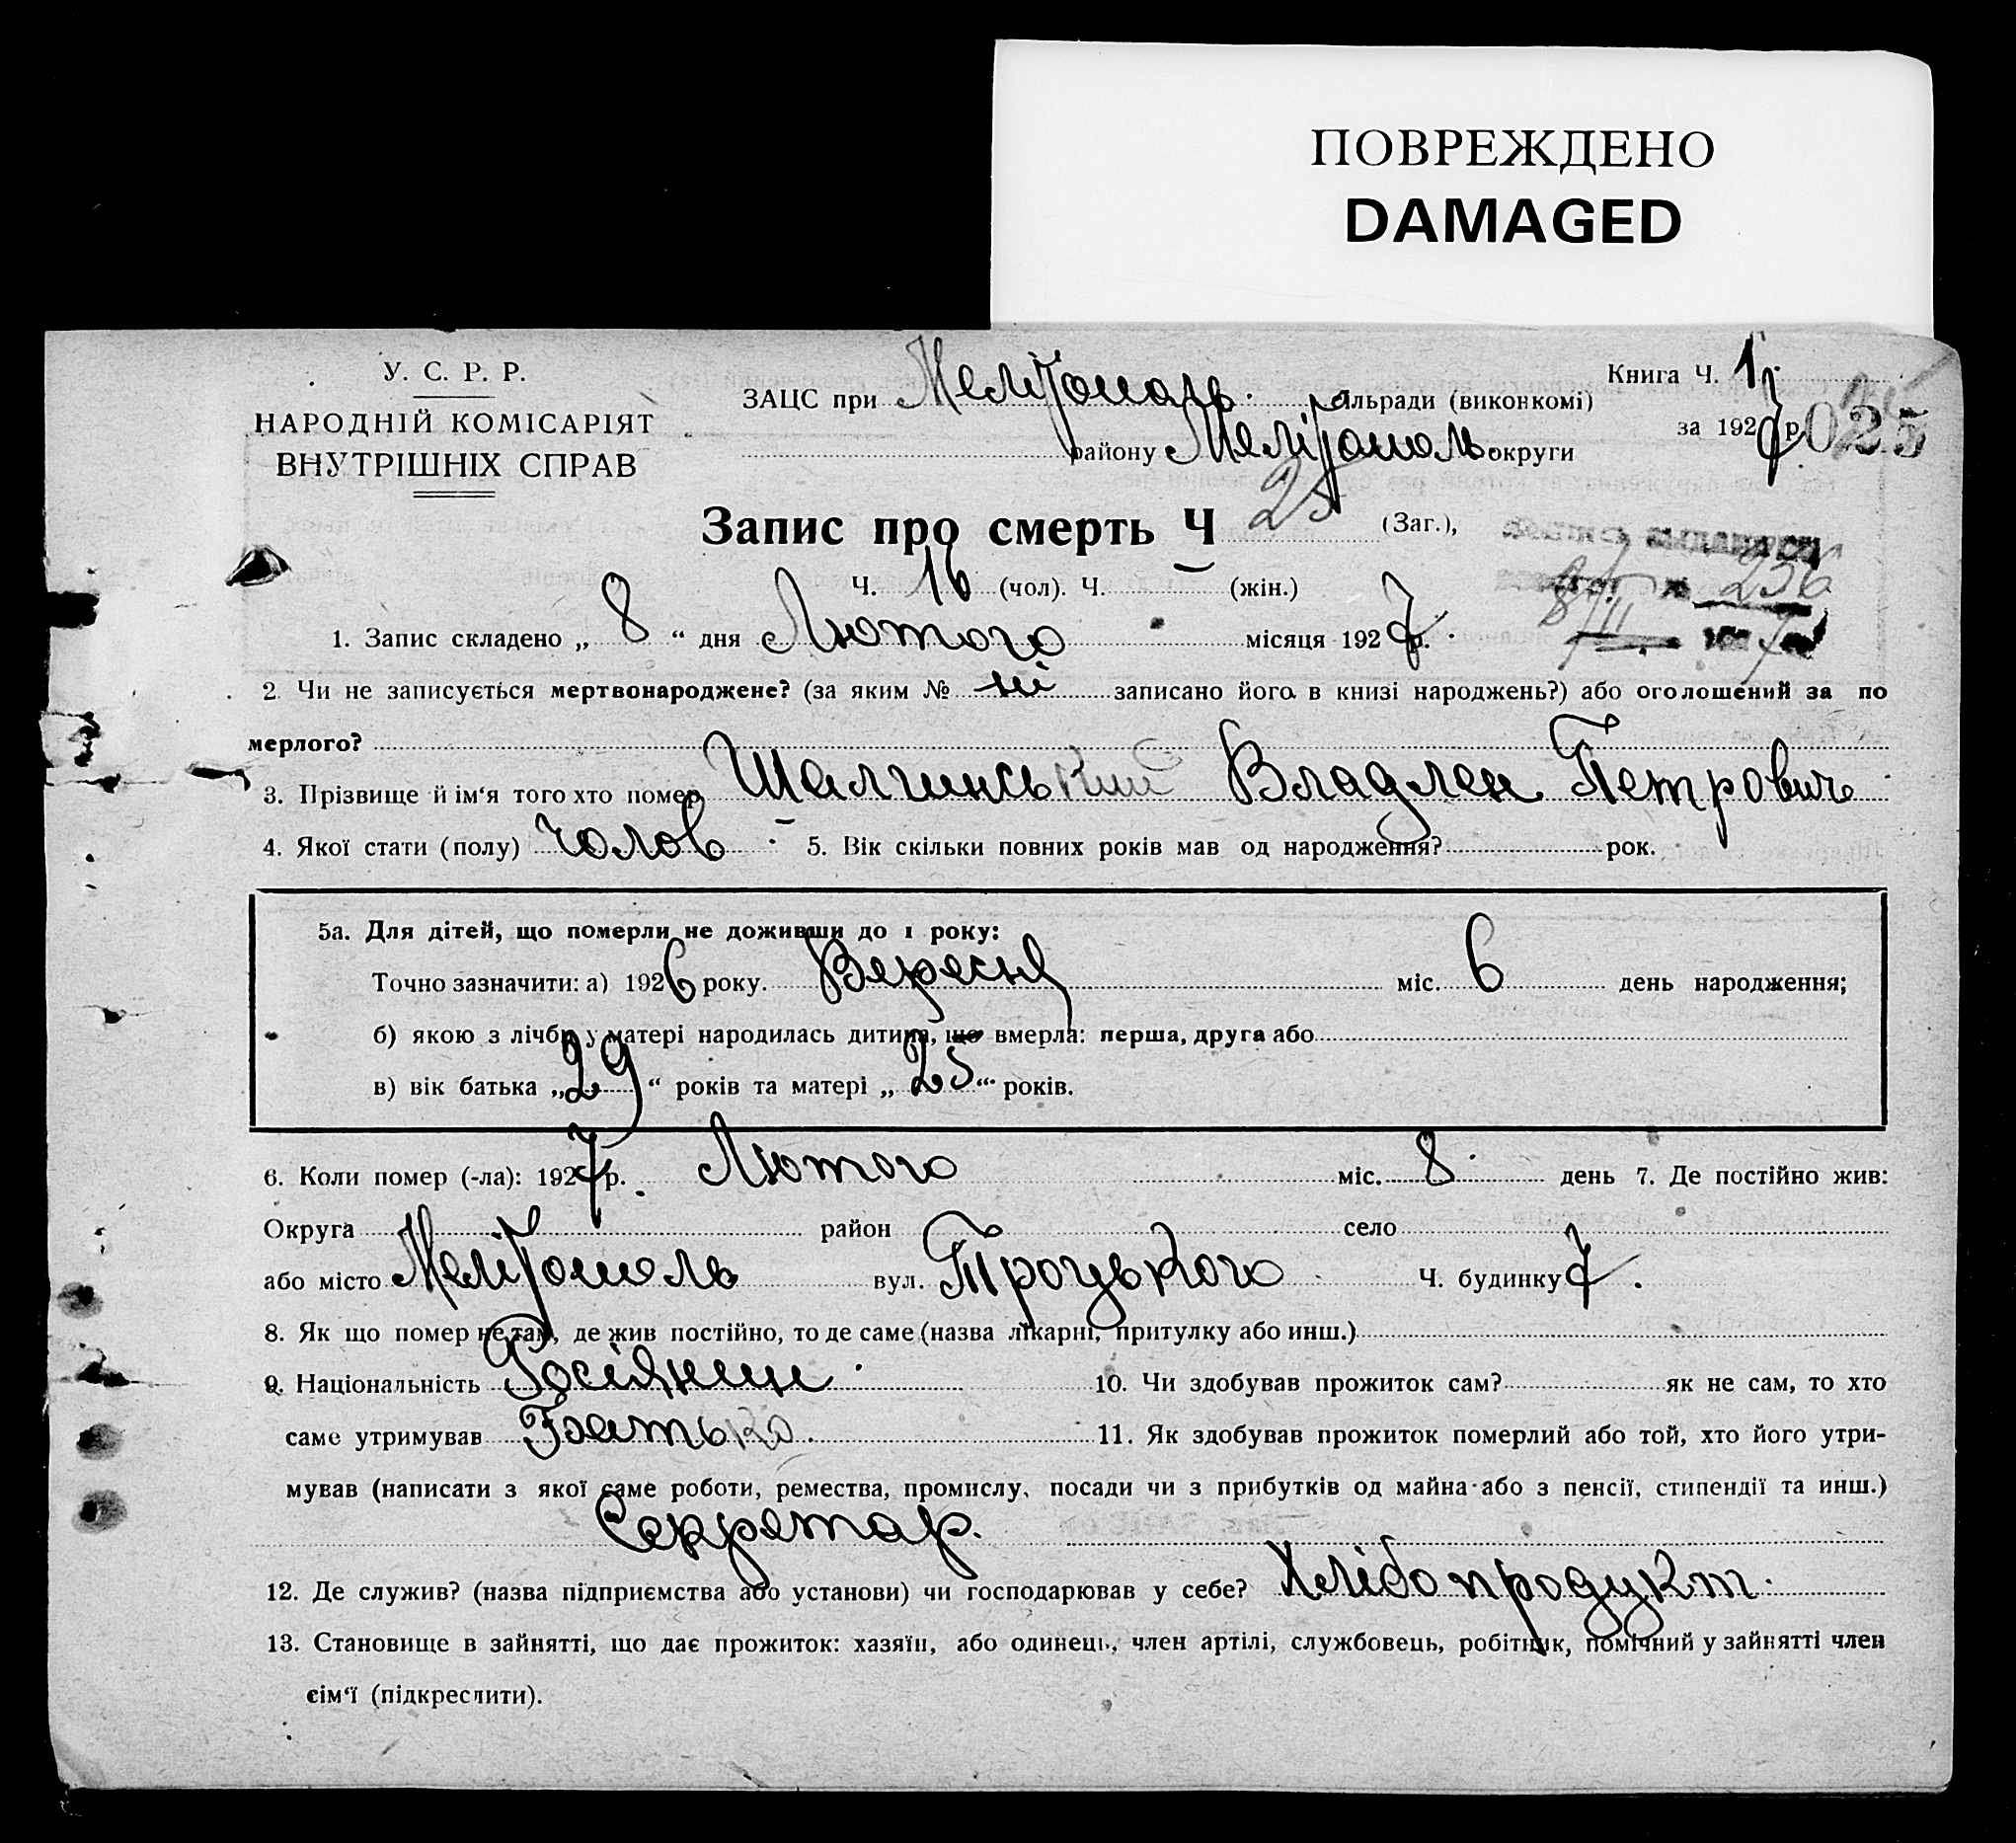 ПОВРЕЖДЕНО
DAMAGED
У. С. Р. Р.
НАРОДНІЙ КОМІСАРІЯТ
ВНУТРІШНІХ СПРАВ
ЗАЦС при Мелітополь. ільради (виконкомі)
району Мелітополь округи
Книга Ч. 1
за 1927 р.
025
Запис про смерть Ч 25 (Заг.),
Ч. 16 (чол). Ч. – (жін.)
256
8/III 7
1. Запис складено „ 8 “ дня Лютого місяця 1927 р.
2. Чи не записується мертвонароджене? (за яким № ні записано його в книзі народжень?) або оголошений за по
мерлого?
3. Прізвище й ім‘я того хто помер Шалгинський Владлен Петрович
4. Якої стати (полу) чолов 5. Вік скільки повних років мав од народження? рок.
5а. Для дітей, що померли не доживши до 1 року:
Точно зазначити: а) 1926 року. Вересня міс. 6 день народження;
б) якою з лічби у матері народилась дитина, що вмерла: перша, друга або
в) вік батька „29“ років та матері „25“ років.
6. Коли помер (-ла): 1927 р. Лютого міс. 8 день 7. Де постійно жив:
Округа район село
або місто Мелітополь вул. Троцького Ч. будинку 7.
8. Як що помер не там, де жив постійно, то де саме (назва лікарні, притулку або инш.)
9. Національність Росіянин 10. Чи здобував прожиток сам? як не сам, то хто
саме утримував Батько. 11. Як здобував прожиток померлий або той, хто його утри-
мував (написати з якої саме роботи, ремества, промислу, посади чи з прибутків од майна або з пенсії, стипендії та инш.)
Секретар.
12. Де служив? (назва підприємства або установи) чи господарював у себе? Хлібопродукт.
13. Становище в зайнятті, що дає прожиток: хазяїн, або одинець, член артілі, службовець, робітник, помічний у зайнятті член
сім‘ї (підкреслити).